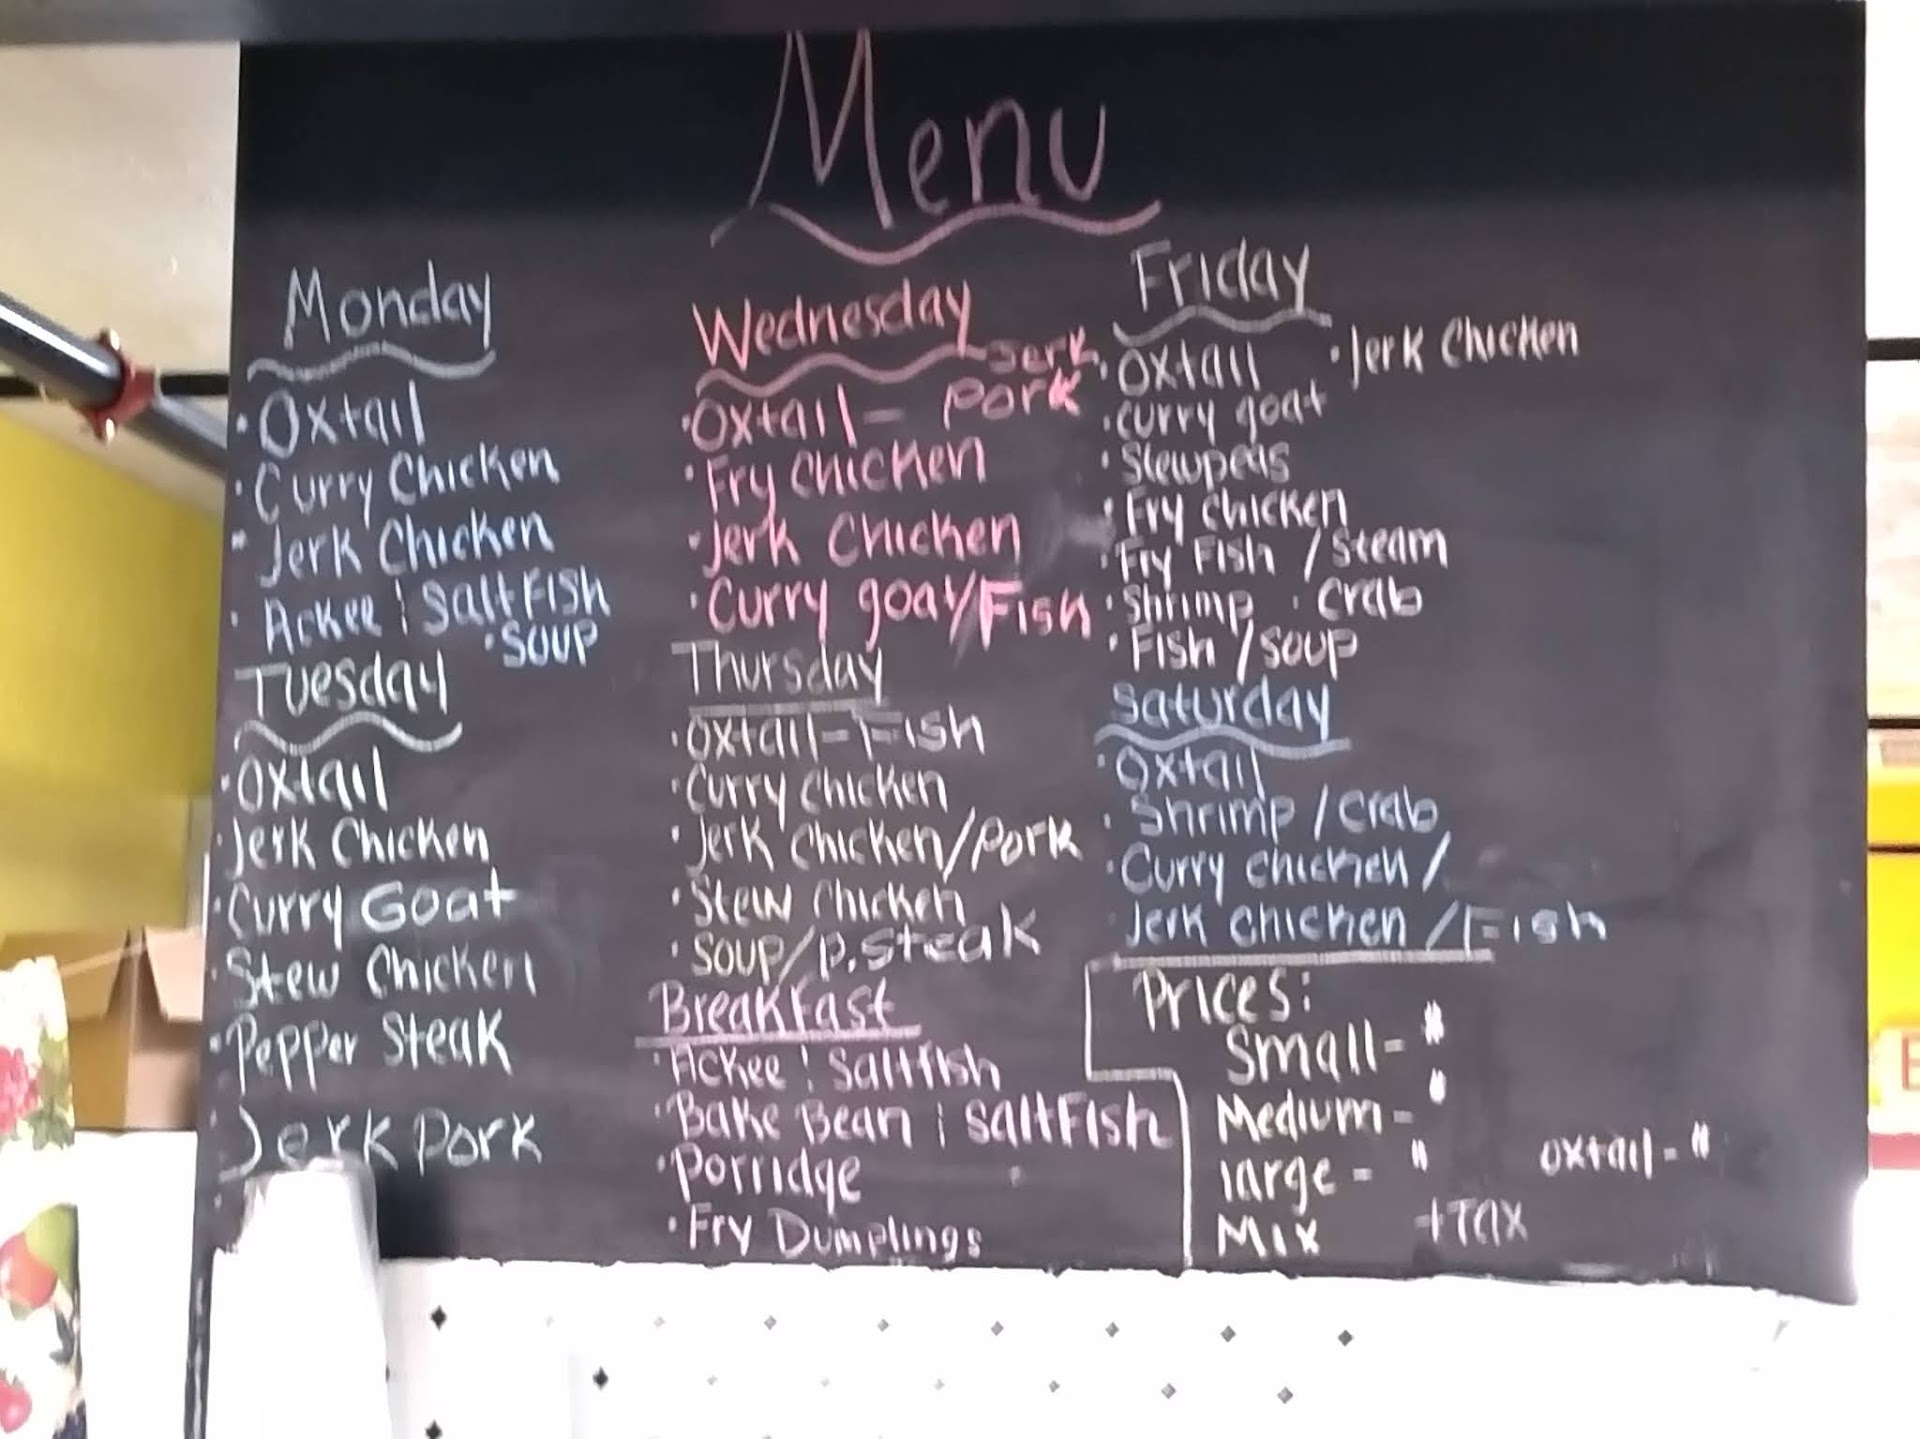 Menu
Monday
• Oxtail
• Curry Chicken
• Jerk Chicken
• Ackee ¦ SaltFish
• Soup
Tuesday
• Oxtail
• Jerk Chicken
• Curry Goat
• Stew Chicken
• Pepper Steak
• Jerk Pork
Wednesday
• Oxtail – Jerk Pork
• Fry Chicken
• Jerk Chicken
• Curry goat/Fish
Thursday
• Oxtail – Fish
• Curry Chicken
• Jerk Chicken/Pork
• Stew Chicken
• Soup/P. Steak
Breakfast
• Ackee ¦ Saltfish
• Bake Bean ¦ SaltFish
• Porridge
• Fry Dumplings
Friday
• Oxtail • Jerk Chicken
• Curry goat
• Stewpeas
• Fry Chicken
• Fry Fish / Steam
• Shrimp • Crab
• Fish / Soup
Saturday
• Oxtail
• Shrimp / Crab
• Curry Chicken /
• Jerk Chicken / Fish
Prices:
Small –
Medium –
large – oxtail –
Mix + Tax